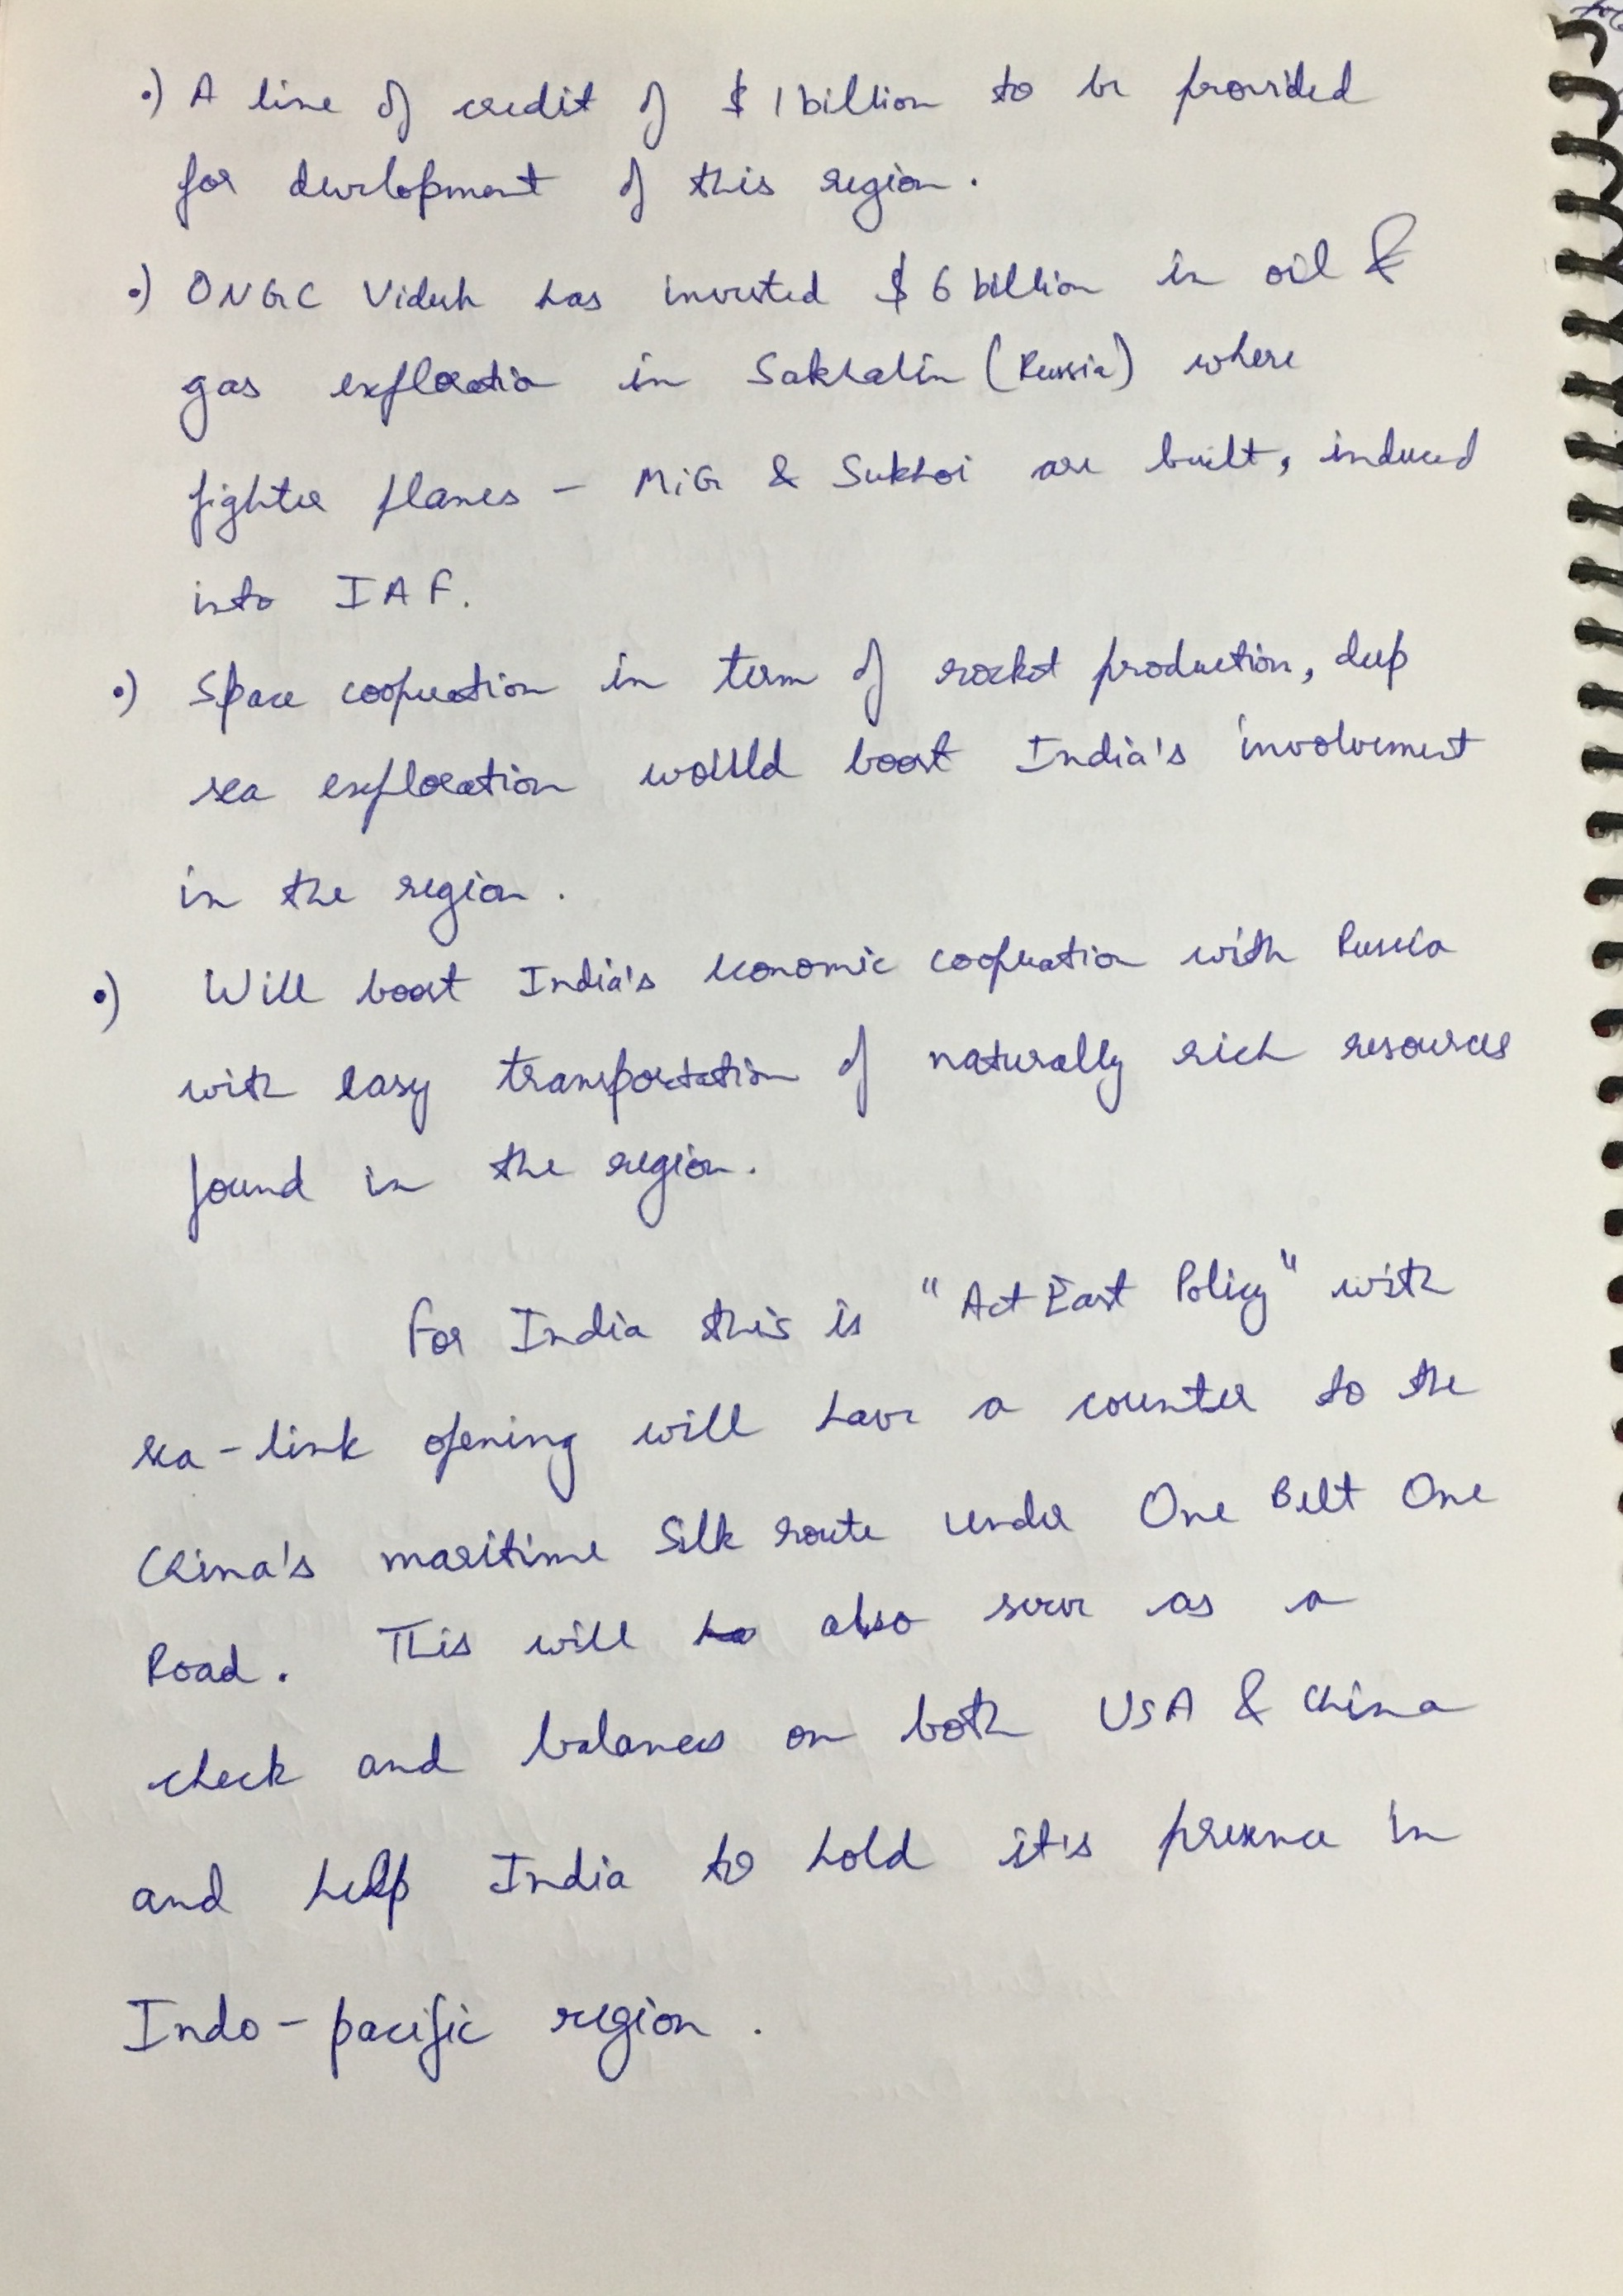 •) A line of credit of $ 1 billion to be provided
for development of this region.
•) ONGC Videsh has invested $ 6 billion in oil &
gas exploratio in Sakhalin (Russia) where
fighter planes - MiG & Sukhoi are built, induced
into IAF.
•) Space cooperation in term of rocket production, deep
sea exploration would boost India's involvement
in the region.
•) Will boost India's economic cooperation with Russia
with easy transportation of naturally rich resources
found in the region.
For India this is "Act East Policy" with
sea-link opening will have a counter to the
China's maritime Silk route under One Belt One
Road. This will also serve as a
check and balances on both USA & China
and help India to hold it's presence in
Indo-pacific region.